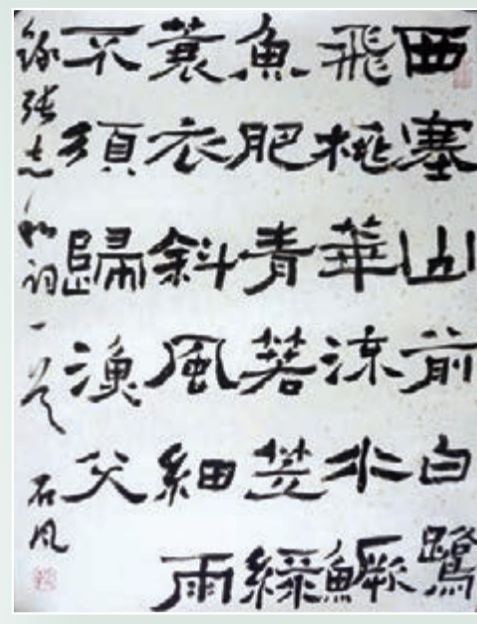 西塞山前白鷺
飛桃華流水鱖
魚肥青箬笠綠
蓑衣斜風細雨
不須歸漁父
錄張志和詞一首 石風